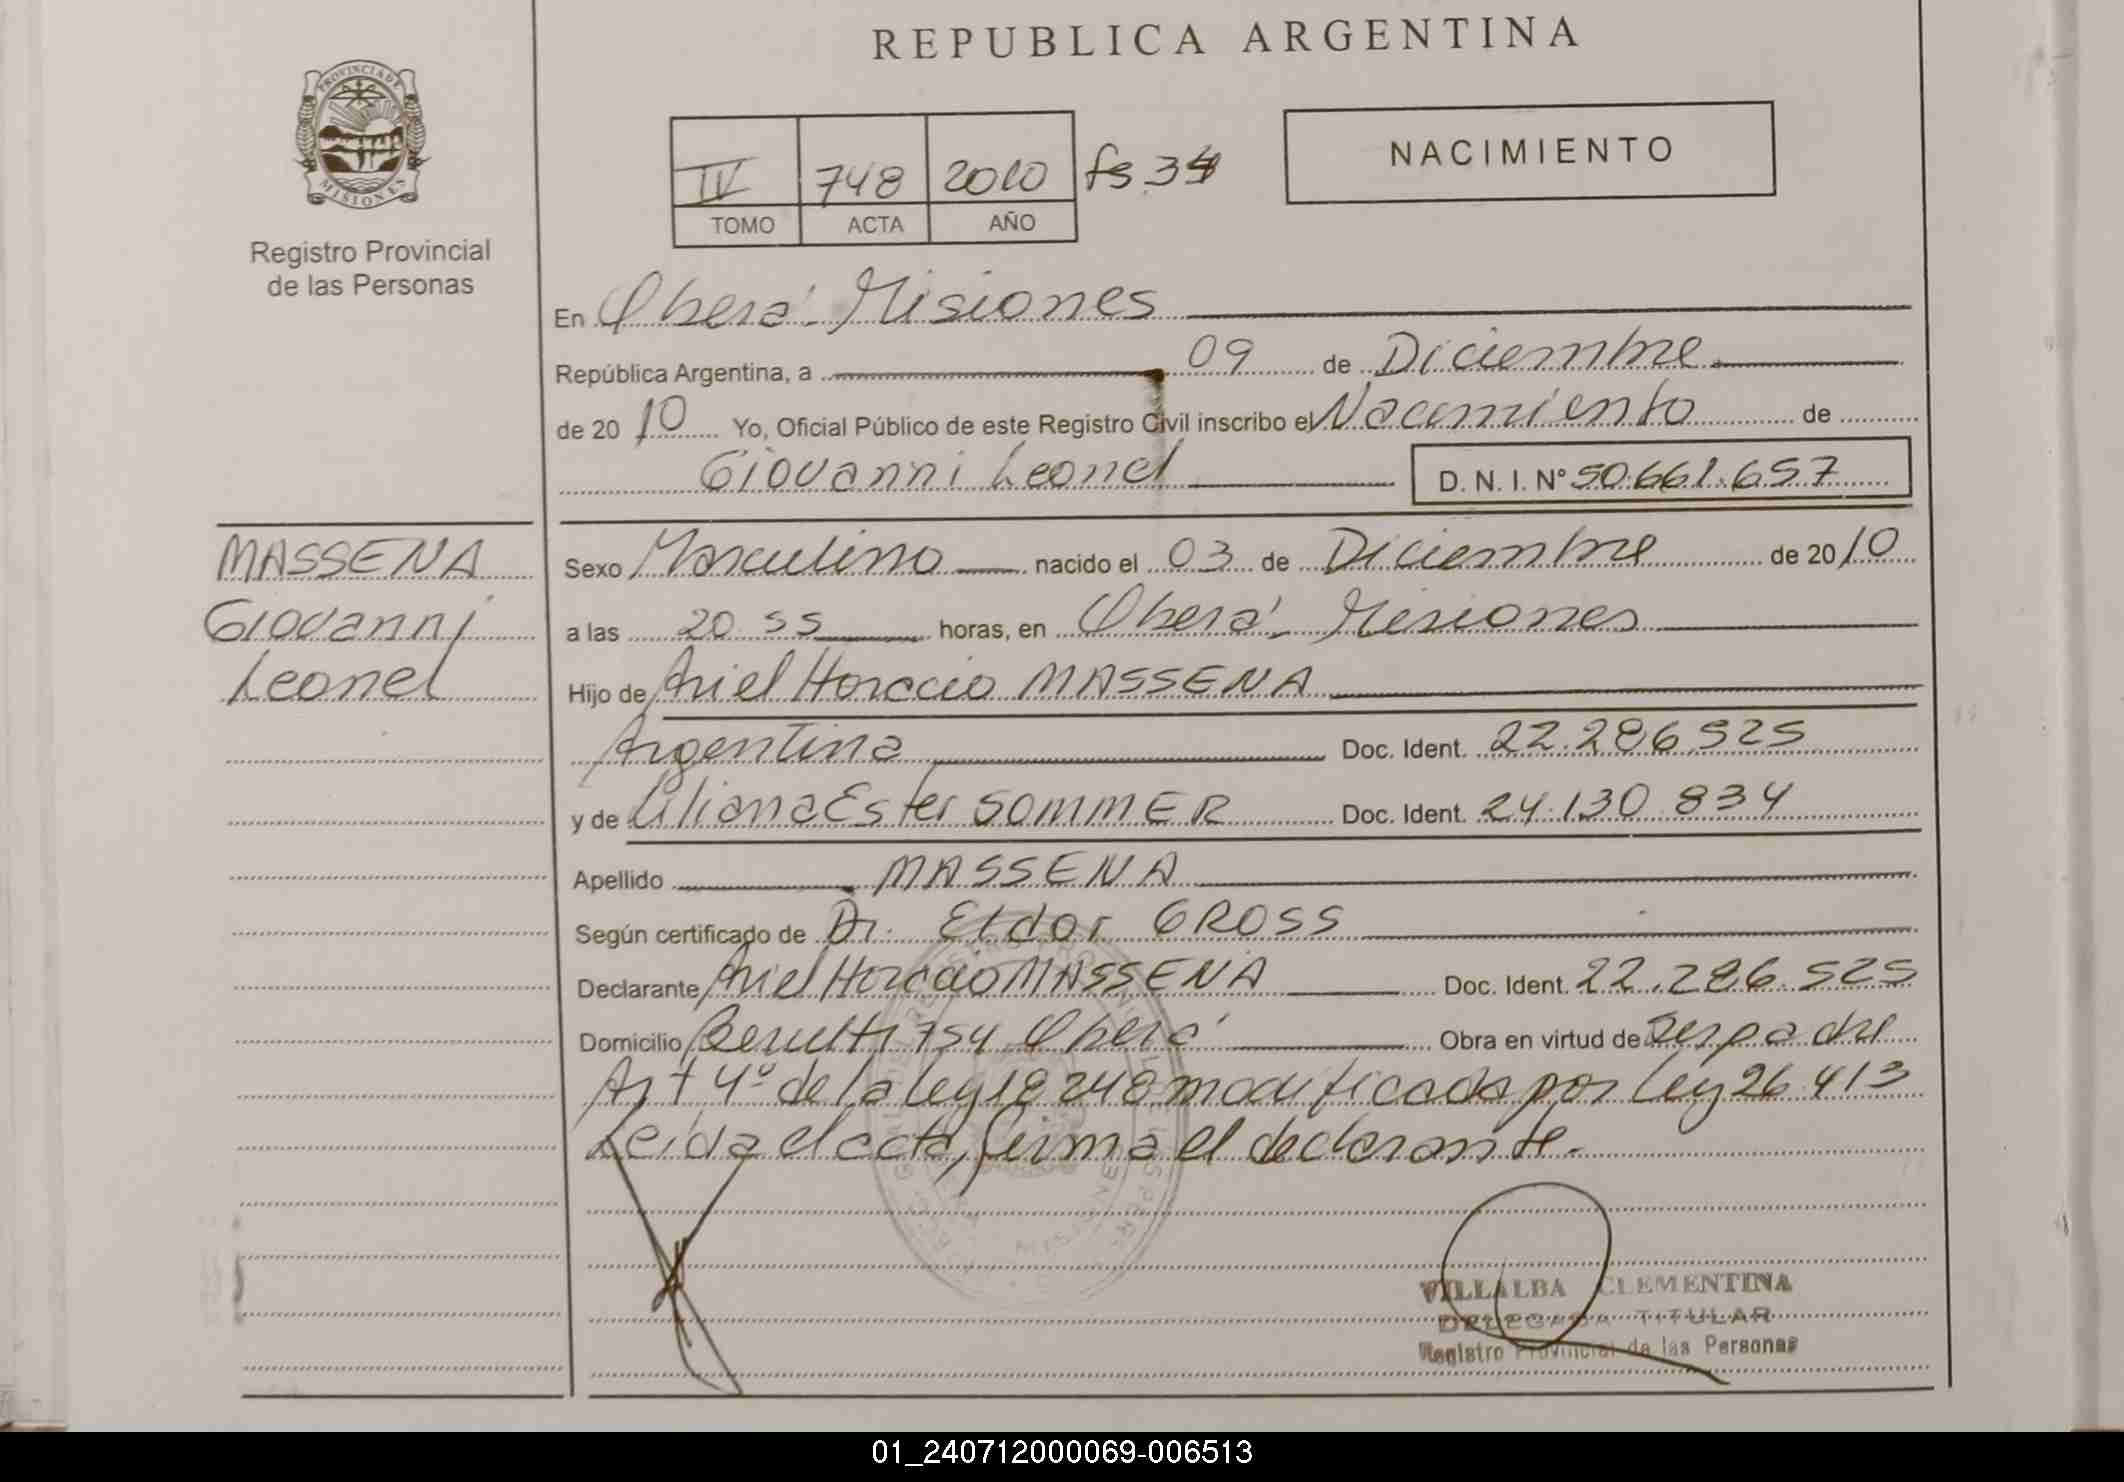 REPUBLICA ARGENTINA
PROVINCIA DE MISIONES
Registro Provincial
de las Personas
IV 748 2010 fs 34
TOMO ACTA AÑO
NACIMIENTO
En Oberá - Misiones
República Argentina, a 09 de Diciembre
de 2010 Yo, Oficial Público de este Registro Civil inscribo el Nacimiento de
Giovanni Leonel D. N. I. Nº 50.661.657
MASSENA
Giovanni
Leonel
Sexo Masculino nacido el 03 de Diciembre de 2010
a las 20 55 horas, en Oberá - Misiones
Hijo de Ariel Horacio MASSENA
Argentina Doc. Ident. 22.286.525
y de Liliana Ester SOMMER Doc. Ident. 24.130.834
Apellido MASSENA
Según certificado de Dr. Eldor GROSS
Declarante Ariel Horacio MASSENA Doc. Ident. 22.286.525
Domicilio Berutti 754 Oberá Obra en virtud de Ser padre
Art 4º de la ley 18 248 modificada por Ley 26.413
Leida el acta, firma el declarante.
VILLALBA CLEMENTINA
DELEGADA TITULAR
Registro Provincial de las Personas
01_240712000069-006513